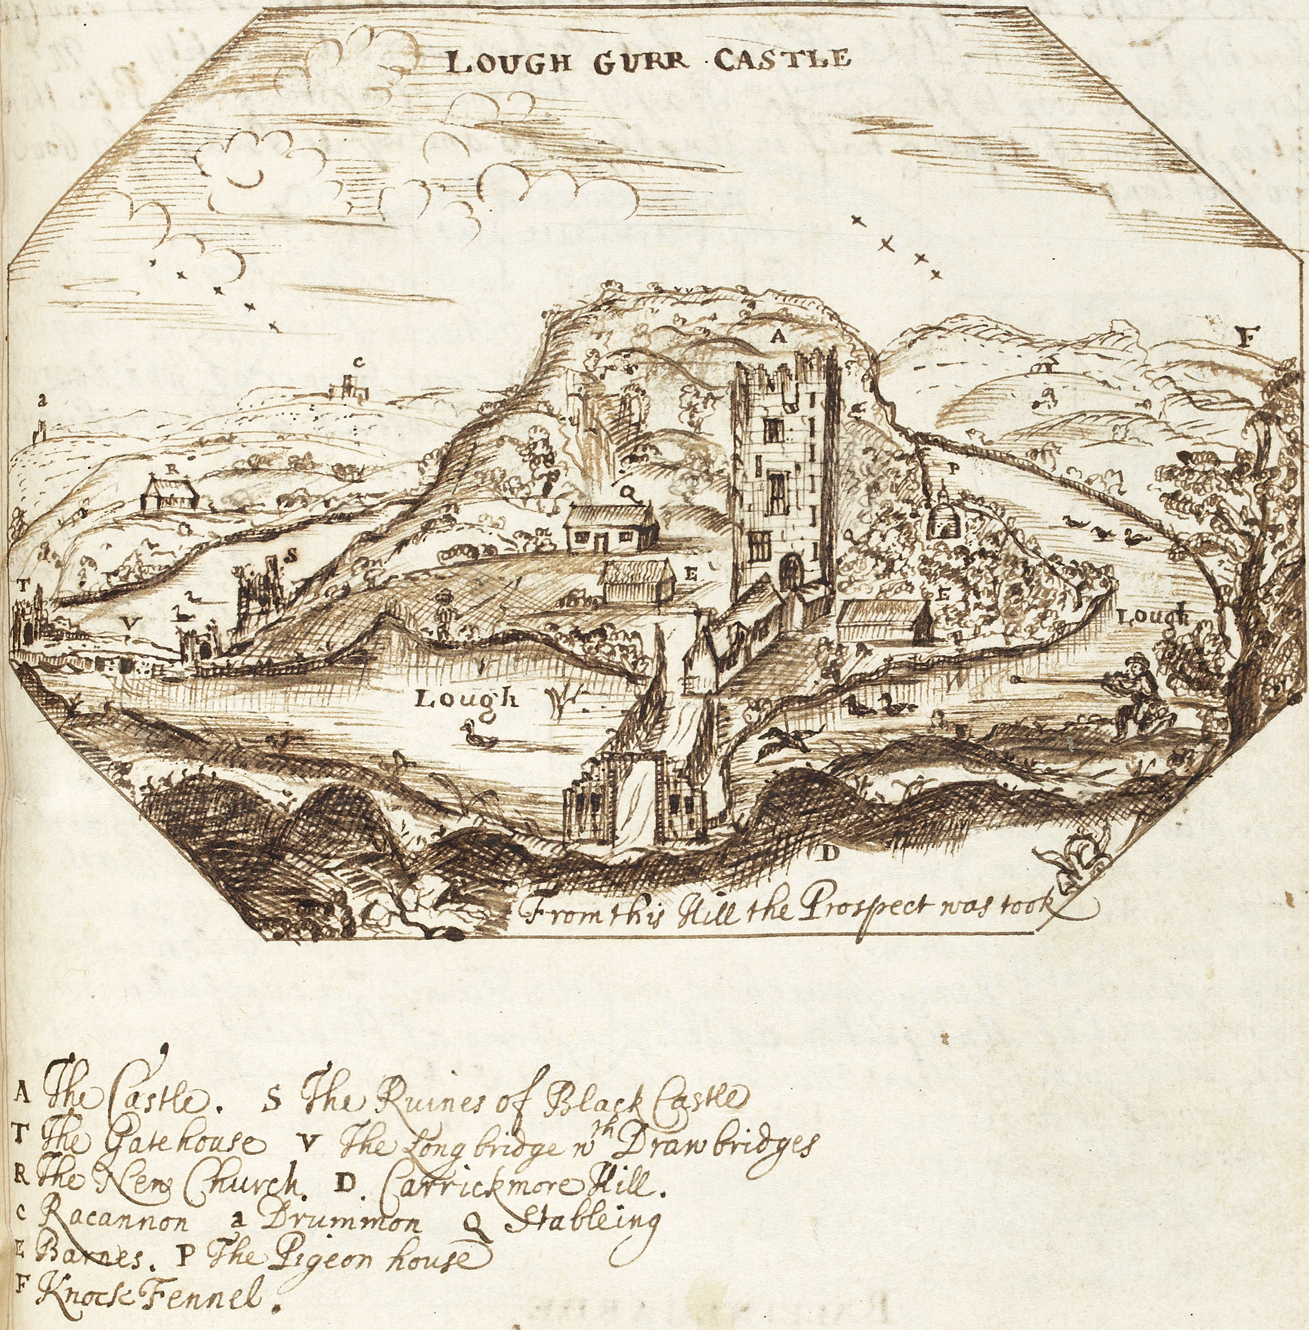 LOUGH GURR CASTLE
A
F
C
a
R
Q
P
S
E
T
E
V
Lough
Lough
D
From this Hill the Prospect was took
A The Castle. S The Ruines of Black Castle
T The Gatehouse V The Longbridge wth Drawbridges
R The New Church. D. Carrickmore Hill.
C Racannon a Drummon Q Stableing
E Barnes. P The Pigeon house
F Knock Fennel.